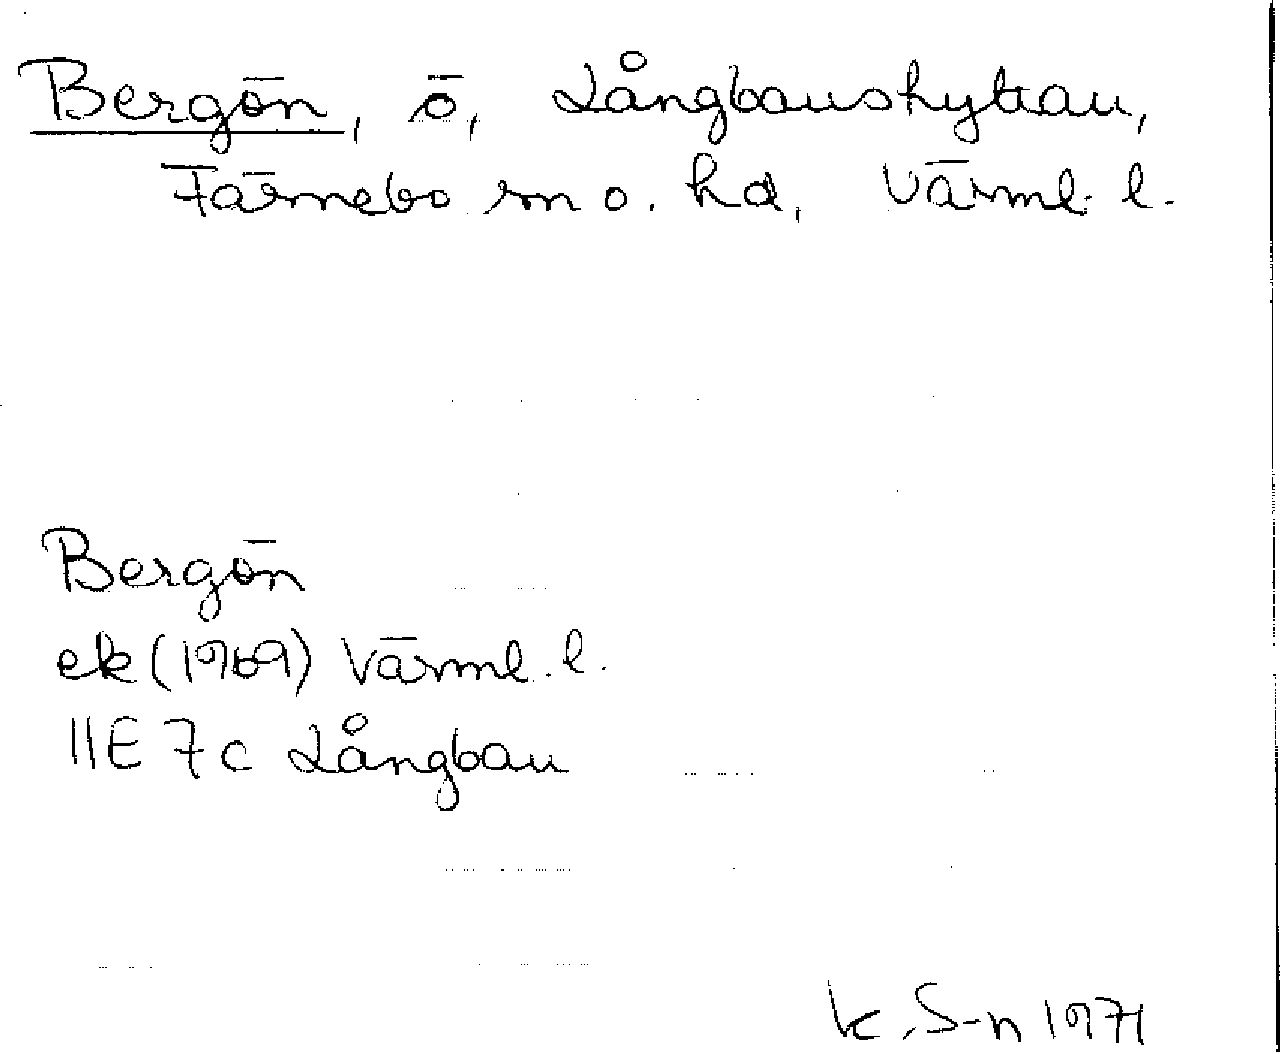 Bergön, ö, Långbanshyttan,
Färnebo sn o. hd, Värml. l.
Bergön
ek (1969) Värml. l.
11E 7c Långban
K. S-n 1971